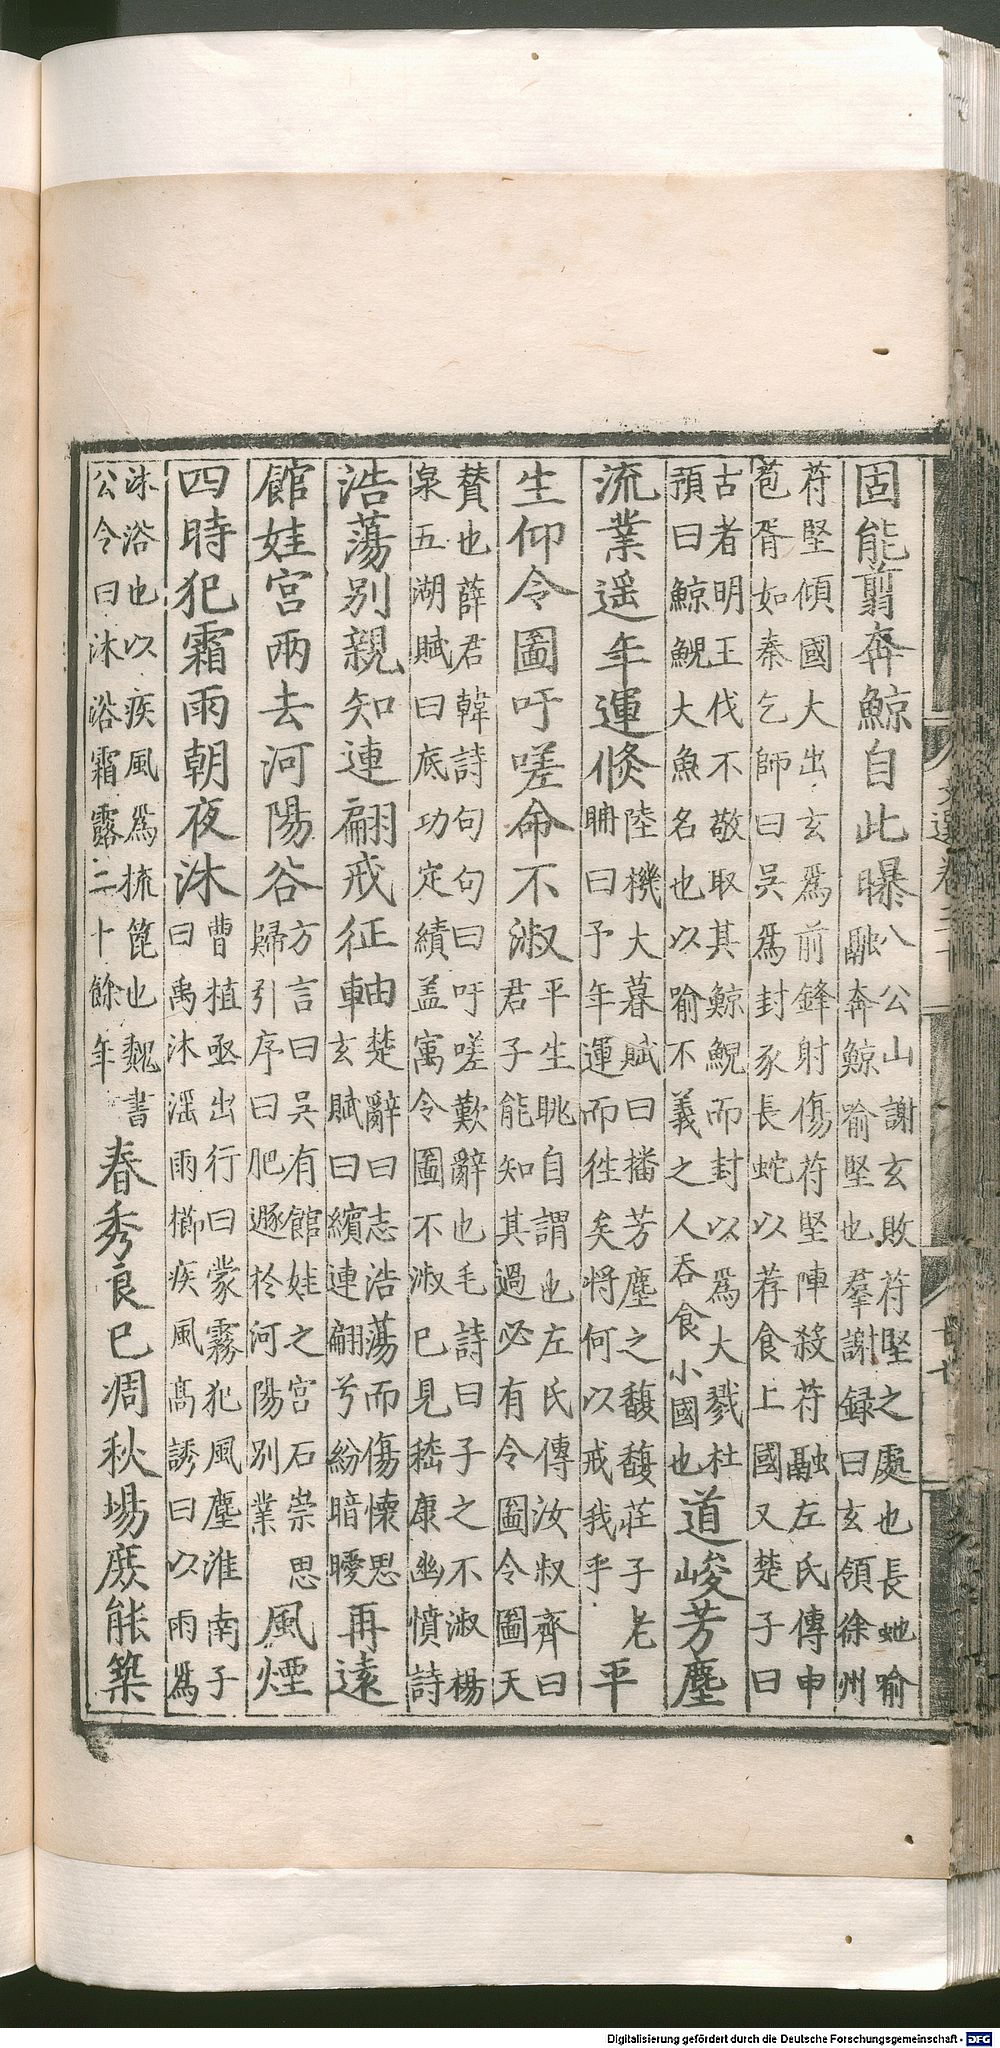 固能翦奔鯨自此曝
八公山謝玄敗苻堅之處也長虵喻
融奔鯨喻堅也羣謝録曰玄領徐州
苻堅傾國大出玄爲前鋒射傷苻堅陣殺苻融左氏傳申
苞胥如秦乞師曰吳爲封豕長蛇以荐食上國又楚子曰
古者明王伐不敬取其鯨鯢而封以爲大戮杜
預曰鯨鯢大魚名也以喻不義之人吞食小國也
道峻芳塵
流業遥年運倐
陸機大暮賦曰播芳塵之馥馥莊子老
聃曰予年運而徃矣將何以戒我乎
平
生仰令圖吁嗟命不淑
平生眺自謂也左氏傳汝叔齊曰
君子能知其過必有令圖令圖天
賛也薛君韓詩句句曰吁嗟歎辭也毛詩曰子之不淑楊
泉五湖賦曰底功定績盖寓令圖不淑已見嵇康幽憤詩
浩蕩別親知連翩戒征軸
楚辭曰志浩蕩而傷懷思
玄賦曰繽連翩兮紛暗曖
再遠
館娃宮兩去河陽谷
方言曰吳有館娃之宮石崇思
歸引序曰肥遯於河陽別業
風煙
四時犯霜雨朝夜沐
曹植亟出行曰蒙霧犯風塵淮南子
曰禹沐淫雨櫛疾風髙誘曰以雨爲
沐浴也以疾風爲梳篦也魏書
公令曰沐浴霜露二十餘年
春秀良已凋秋場庶能築
Digitalisierung gefördert durch die Deutsche Forschungsgemeinschaft - DFG